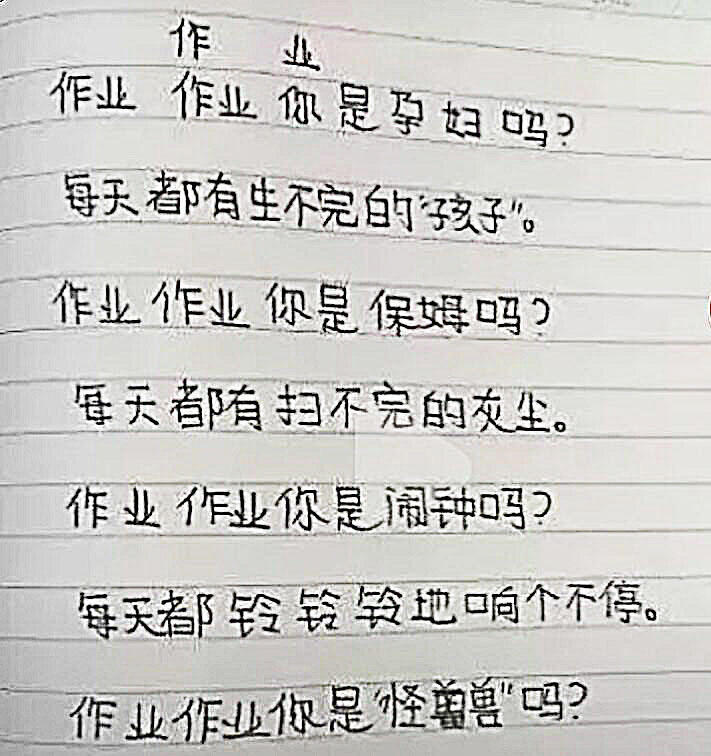 作业
作业 作业 你是孕妇吗?
每天都有生不完的“孩子”。
作业 作业 你是保姆吗?
每天都有扫不完的灰尘。
作业 作业你是闹钟吗?
每天都铃铃铃地响个不停。
作业作业你是“怪兽”吗?